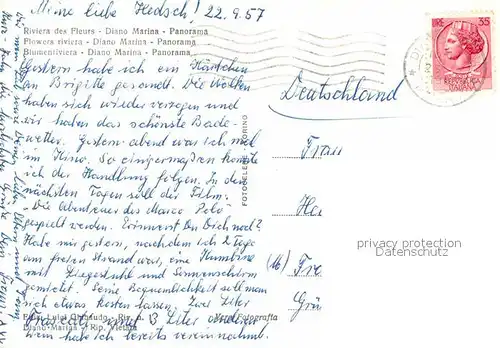 Meine liebe Hedsch! 22.9.57
Riviera des Fleurs - Diano Marina - Panorama
Flowers riviera - Diano Marina - Panorama
Blumenriviera - Diano Marina - Panorama
Gestern habe ich ein Kärtchen
an Brigitte gesandt. Die Wolken
haben sich wieder verzogen und
wir haben das schönste Bade-
wetter. Gestern abend war ich mal
im Kino. So einigermaßen konnte
ich der Handlung folgen. In den
nächsten Tagen soll der Film:
"Die Abenteuer des Marco Polo
gespielt werden. Erinnerst Du Dich noch?
Habe mir gestern, nachdem ich 2 Tage
am freien Strand war, eine
mit Liegestuhl und Sonnenschirm
gemietet. Seine Bequemlichkeit soll man
sich etwas kosten lassen. Zwei Liter
Frascati und 3 Liter anderen
Wein habe ich bereits vereinnahmt.
FOTOCELERE - TORINO
Diano Marina - Rip. Vietata
Vera Fotografia
Deutschland
Frau
(16) Fr
Grü
LIRE 35
REPVBBLICA
ITALIANA
privacy protection